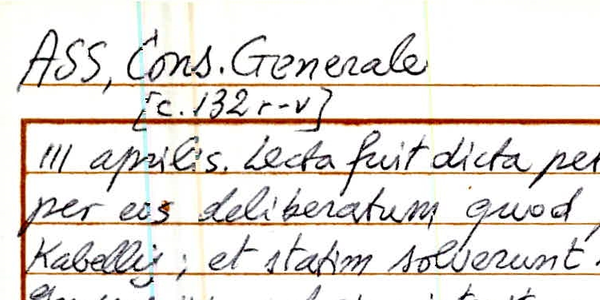 ASS, Cons. Generale
[c. 132 r-v]
III aprilis. Lecta fuit dicta pe
per eos deliberatum quod
Kabellis; et statim solverunt